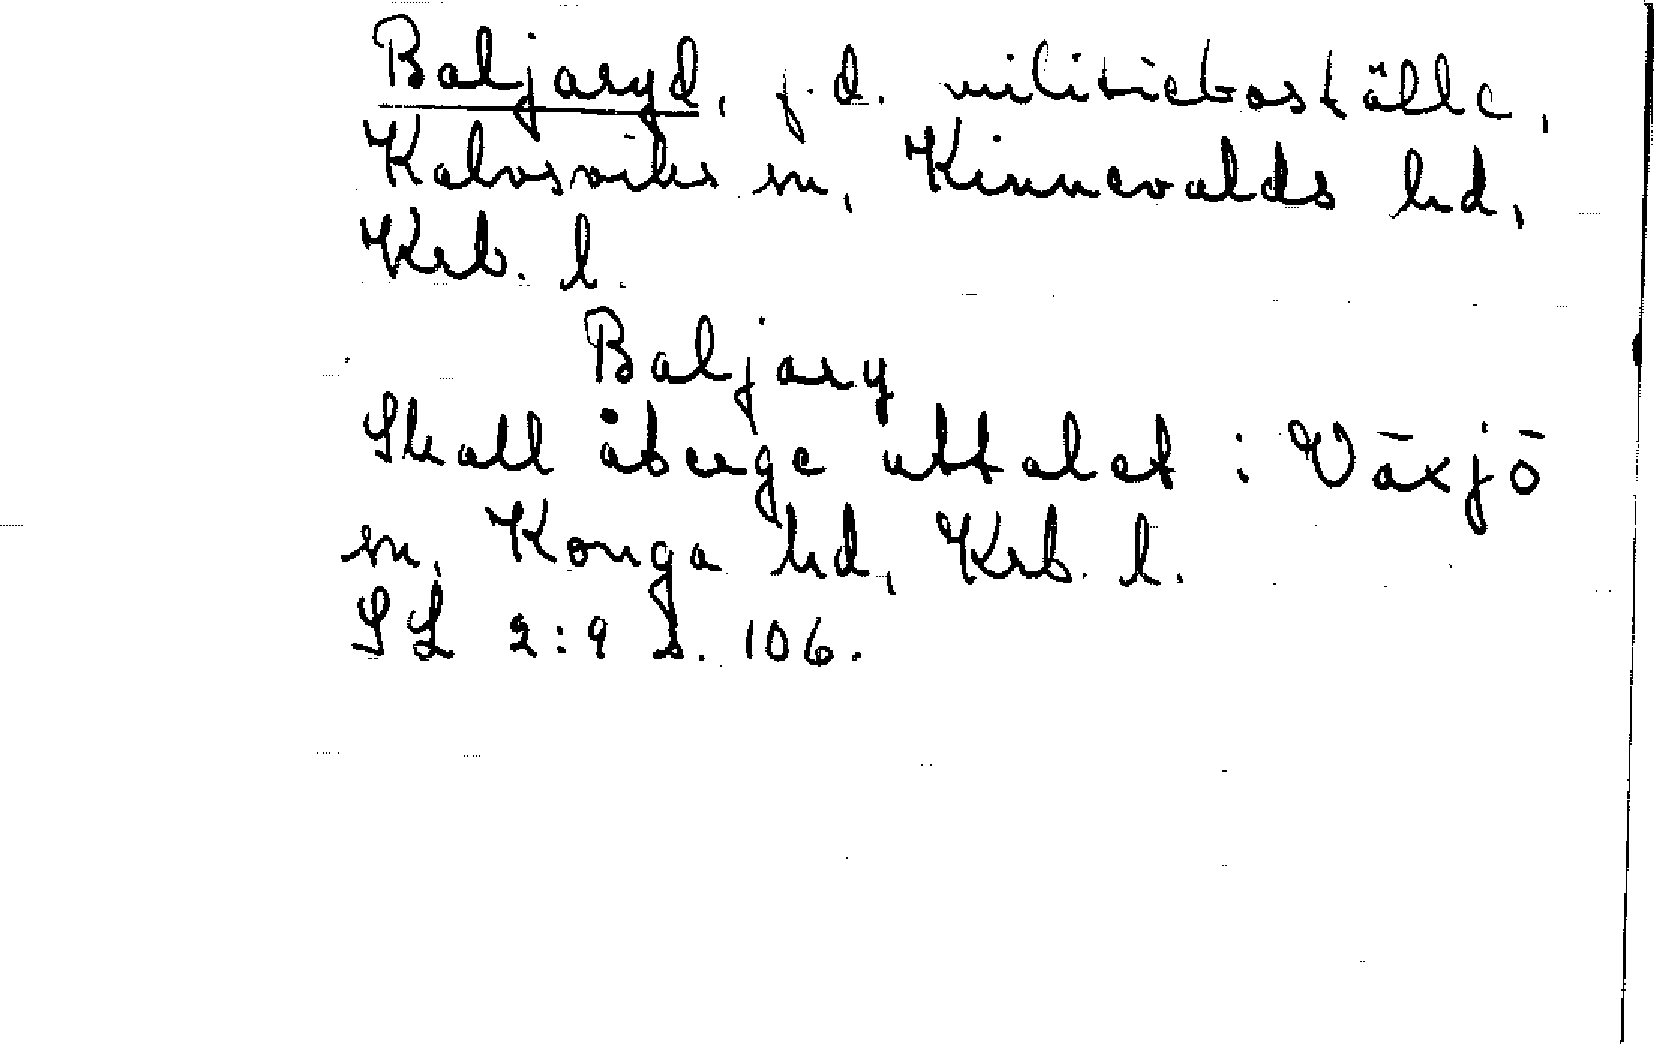 Baljaryd, f.d. militieboställe,
Kalvsviks sn, Kinnevalds hd,
Krb. l.
Baljary
Skall återge uttalet i Växjö
sn, Konga hd, Krb. l.
SL 2:9 s. 106.